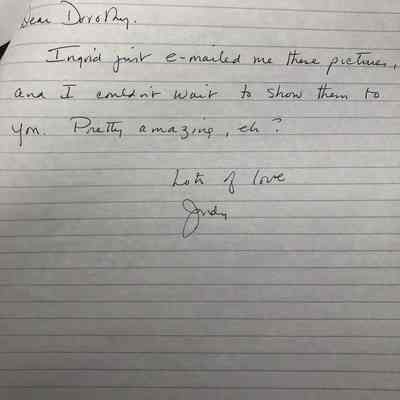 Dear Dorothy.
Ingrid just e-mailed me these pictures,
and I couldn't wait to show them to
you. Pretty amazing, eh?
Lots of love
Judy